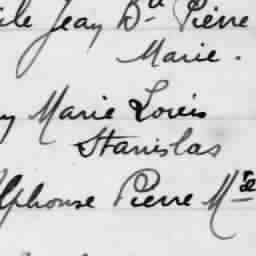 ile Jean Bte Pierre
Marie.
y Marie Louis
Stanislas
Alphonse Pierre Mie